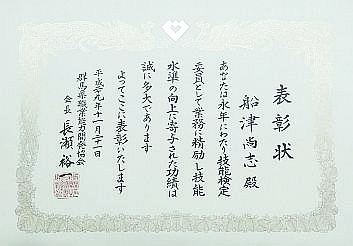 表彰状
船津尚志 殿
あなたは永年にわたり技能検定
委員として業務に精励し技能
水準の向上に寄与された功績は
誠に多大であります
よってここに表彰いたします
平成二十九年十一月二十一日
群馬県職業能力開発協会
会長 長瀬裕一